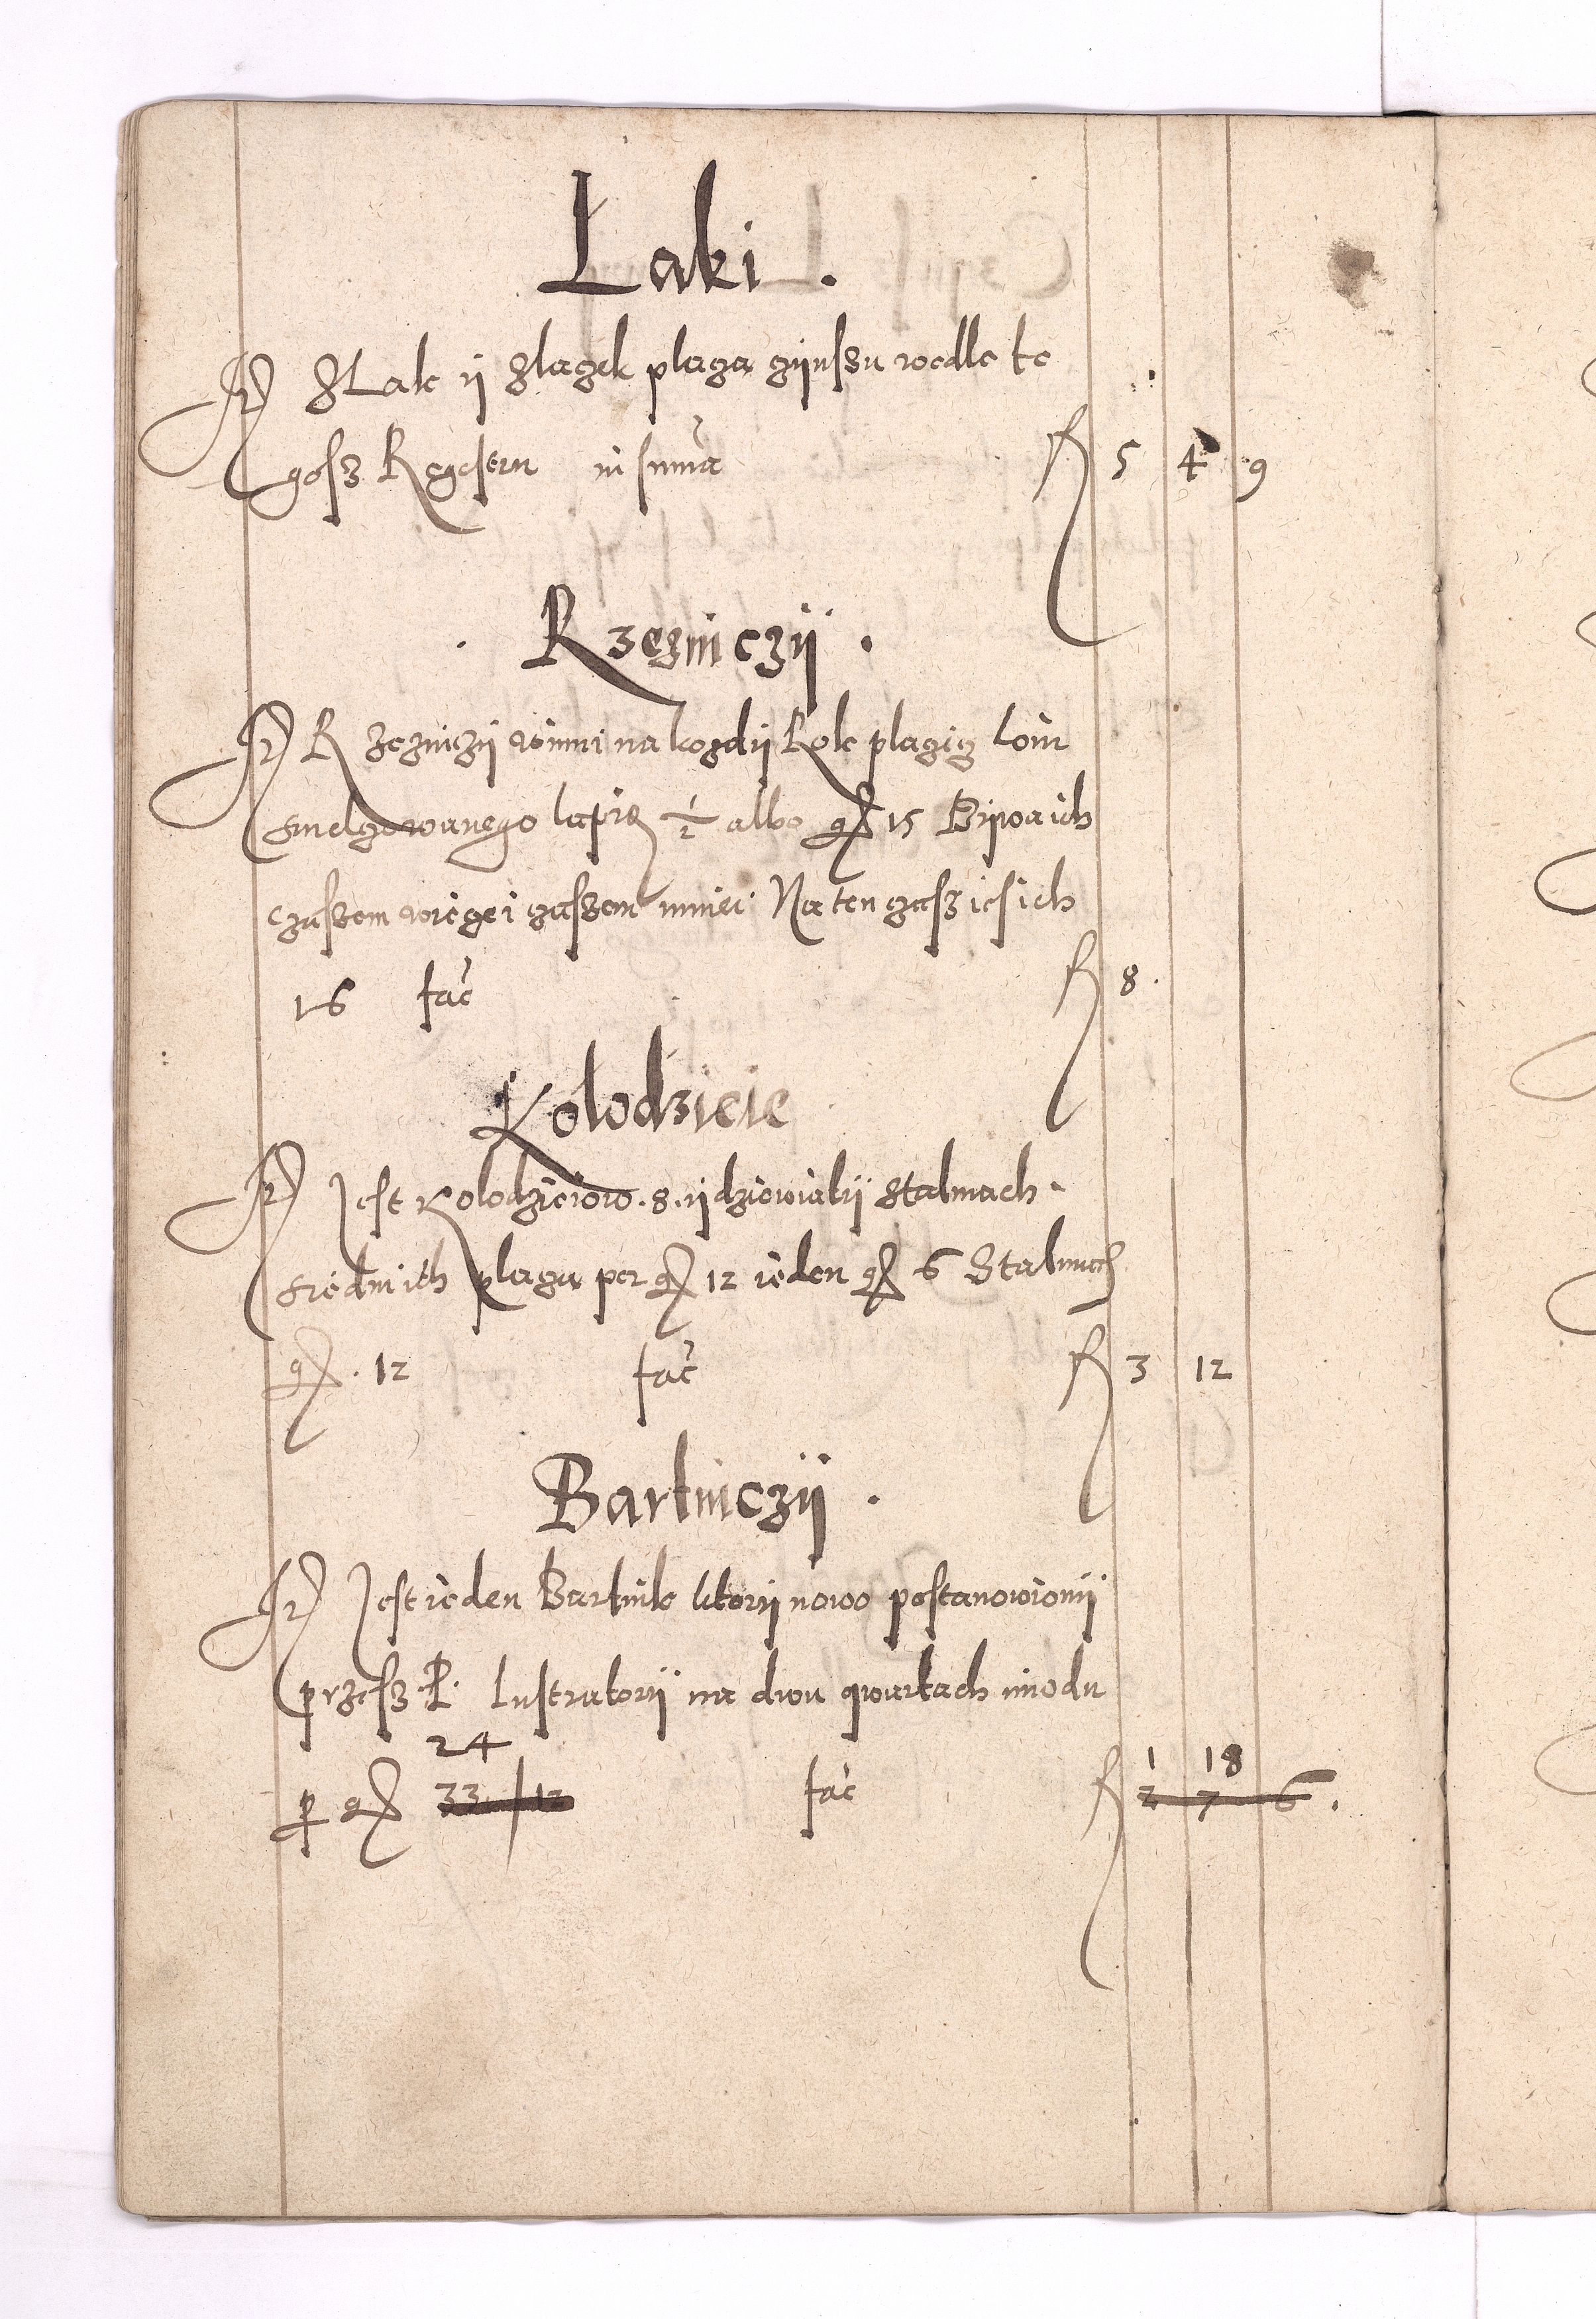 Łaki.
It zLak ÿ zlagek placza czÿnszu wedle te
gosz Regestru in suma fl 5 4 9
Rzezniczÿ.
It Rzezniczÿ winni na kozdÿ Rok placzicz Loiu
smelczowanego lapis 1/2 albo gr 15 Bÿwa ich
czassem wiecze i czassem mniei Na ten czasz iest ich
16 fac fl 8.
Kolodzieie
It Jest Kolodzieiow. 8. ÿ dziewiatÿ Stalmach.
siedm ich placza per gr 12 ieden gr 6 Stalmach
gr. 12 fac fl 3 12
Bartniczÿ.
It Jest ieden Bartnik ktorÿ nowo postanowionÿ
przesz P. Lustratorÿ na dwu qwartach miodu
24
per gr 33 / 12 fac fl 1 18
2 7 6.